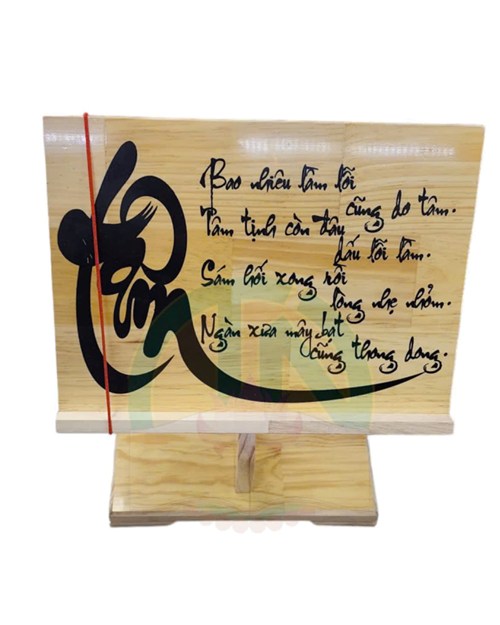 Tâm
Bao nhiêu lầm lỗi
cũng do tâm.
Tâm tịnh còn đâu
dấu lỗi lầm.
Sám hối xong rồi
lòng nhẹ nhởm.
Ngàn xưa mây bạt
cũng thong dong.